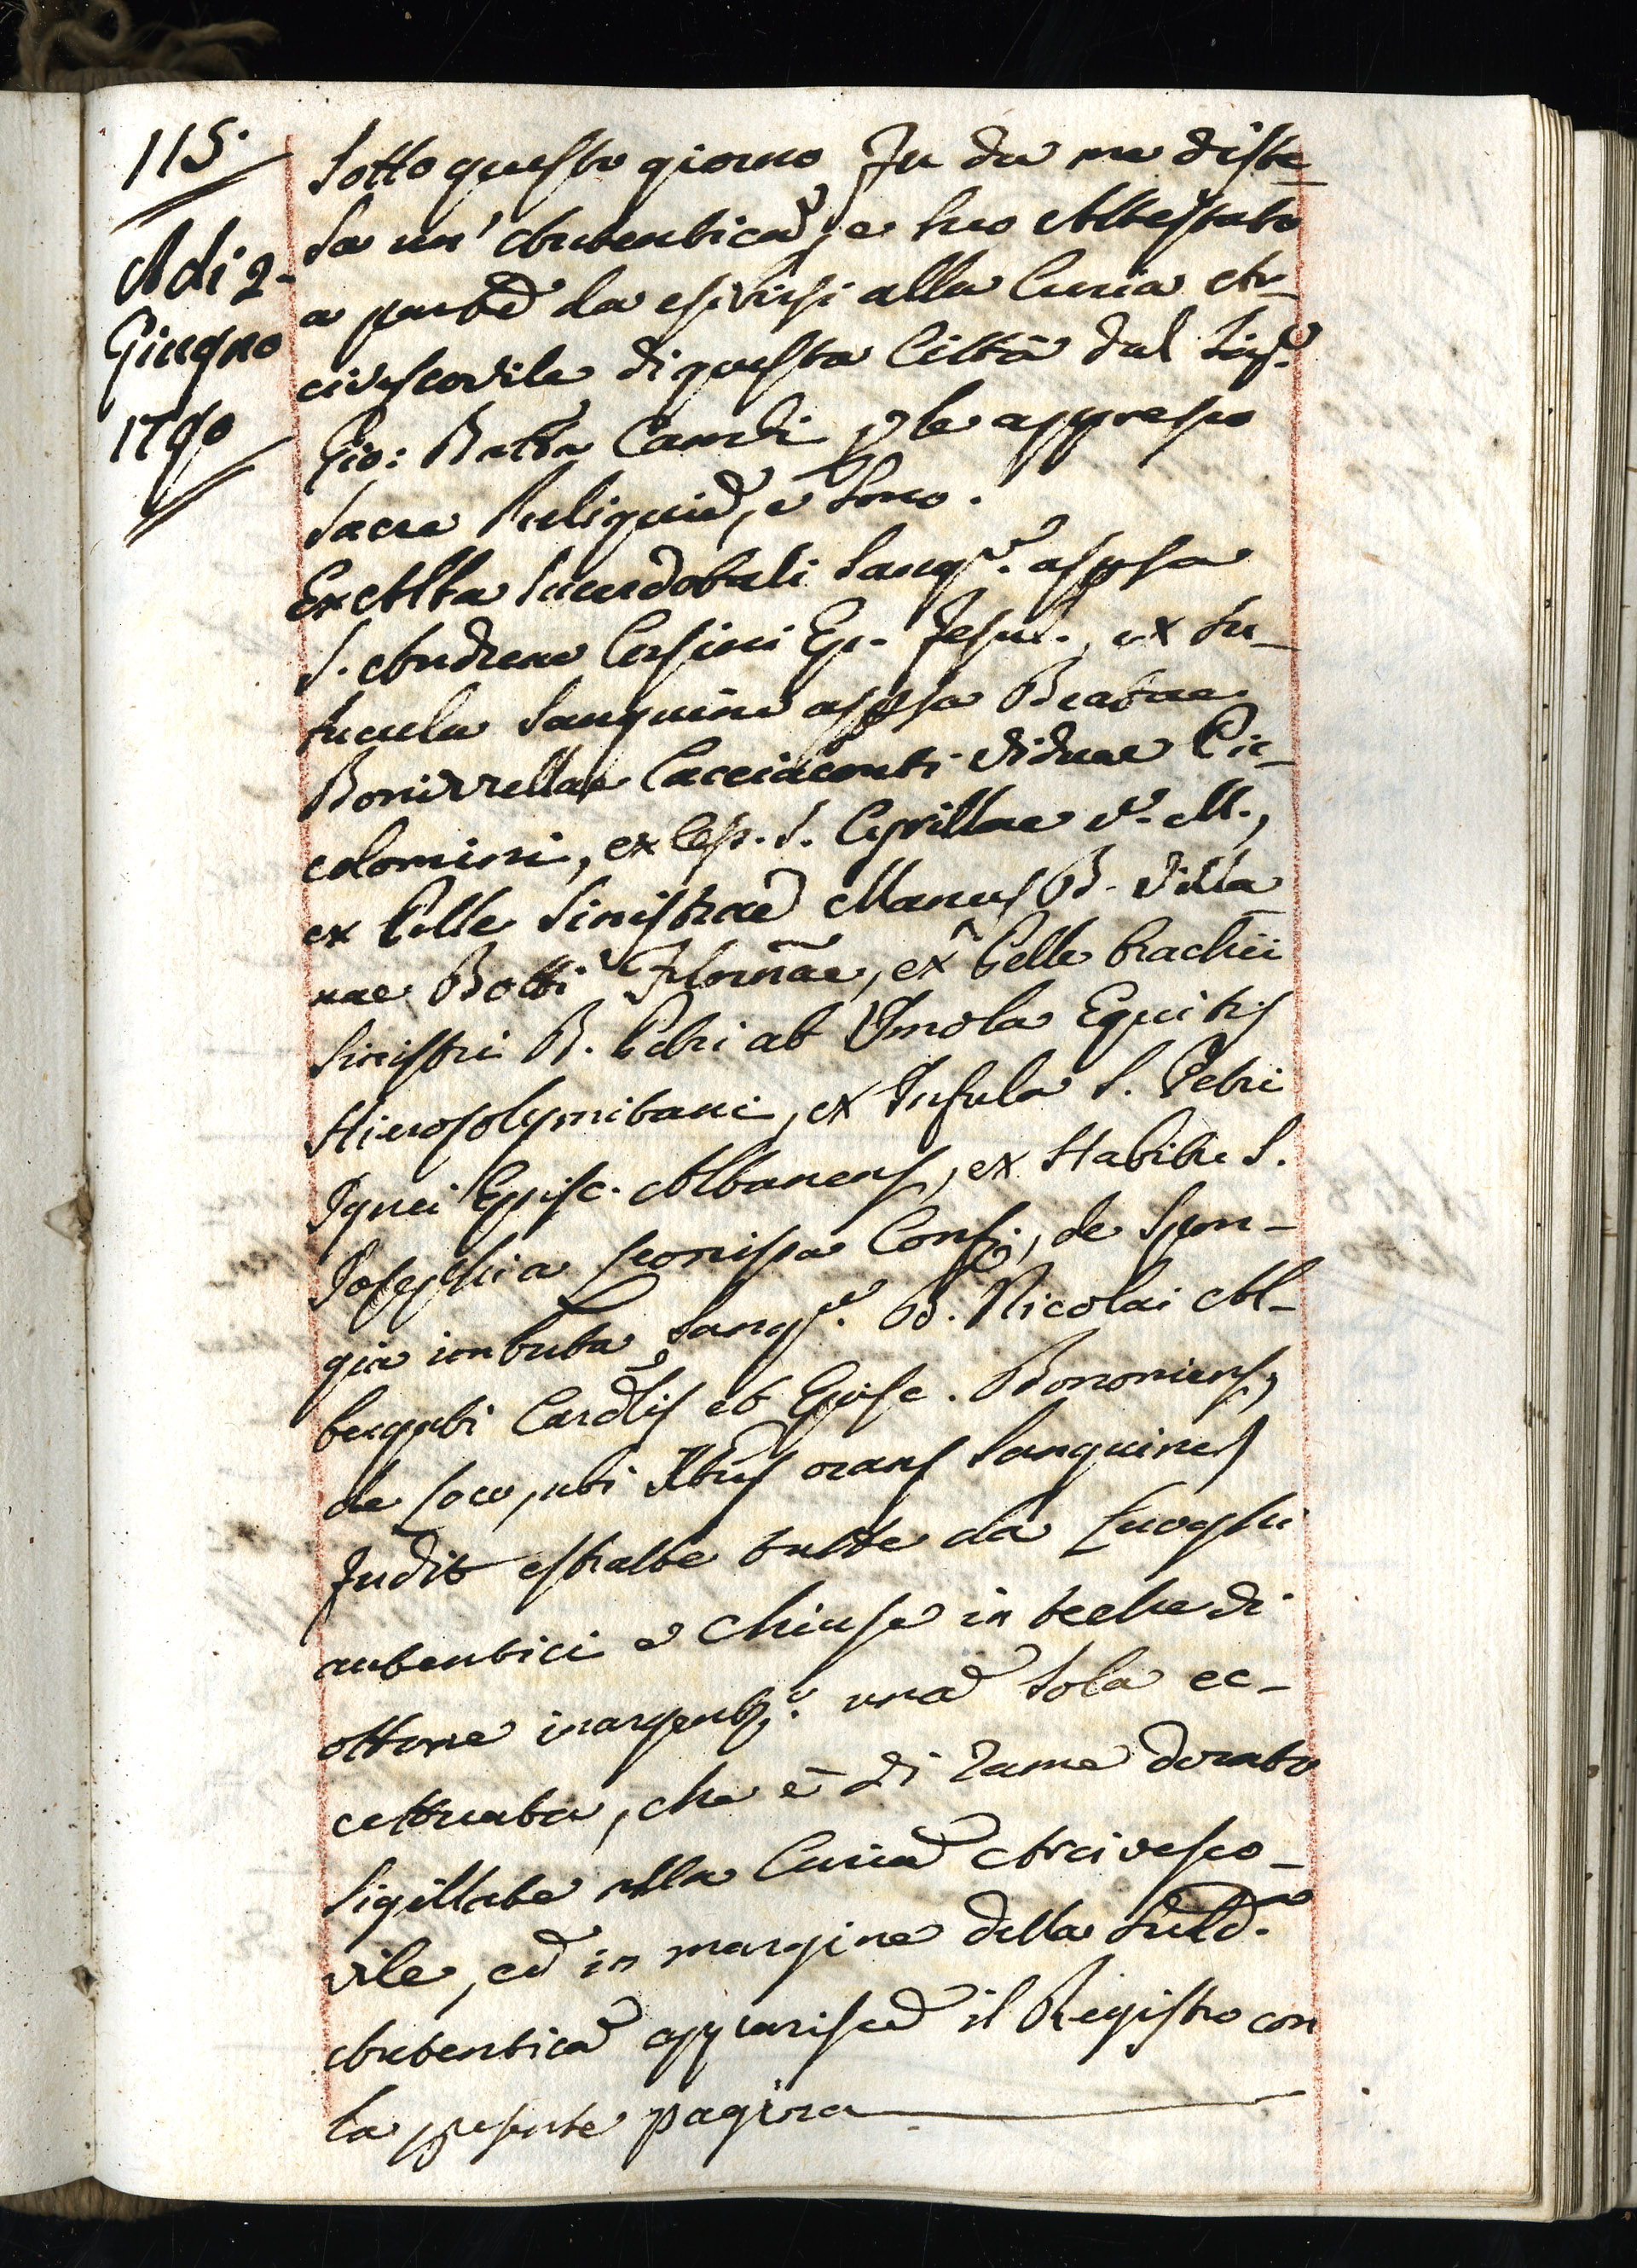 115.
Adi 2.
Giugno
1790
Sotto questo giorno fu da me diste_
sa un' Autentica, e suo Attestato
a parte da esibirsi alla Curia Ar_
civescovile di questa Città dal Sig.r
Gio: Batta Candi p le appresso
Sacre Reliquie, e sono.
Ex Alba Sacerdotali Sang.e aspsa
S. Andreae Corsini Ep. Fesul., ex Su_
bucula Sanguine aspsa Beatae
Bonizzellae Cacciaconti Viduae Pic_
colomini, ex Osp. S. Cyrillae V. M.,
ex Pelle Sinistrae Manus B. Villa
nae Botti Flornae, ex Pelle brachii
Sinistri B. Petri ab Imola Equitis
Hierosolymitani, ex Insula S. Petri
Ignei Episc. Albanens, ex Habitu S.
Josephi a Leonissa Conf., de Spon_
gia imbuta Sang.e B. Nicolai Al_
bergati Cardlis et Episc. Bononiens,
de Loco, ubi Xtus orans Sanguinem
fudit estratte tutte da Luoghi
autentici e chiuse in teche di
ottone inargent.o una sola ec_
cettuata, che è di rame dorato
Sigillate nella Curia Arcivesco_
vile, ed in margine della Sudd.a
Autentica apparisce il Registro con
la presente pagina